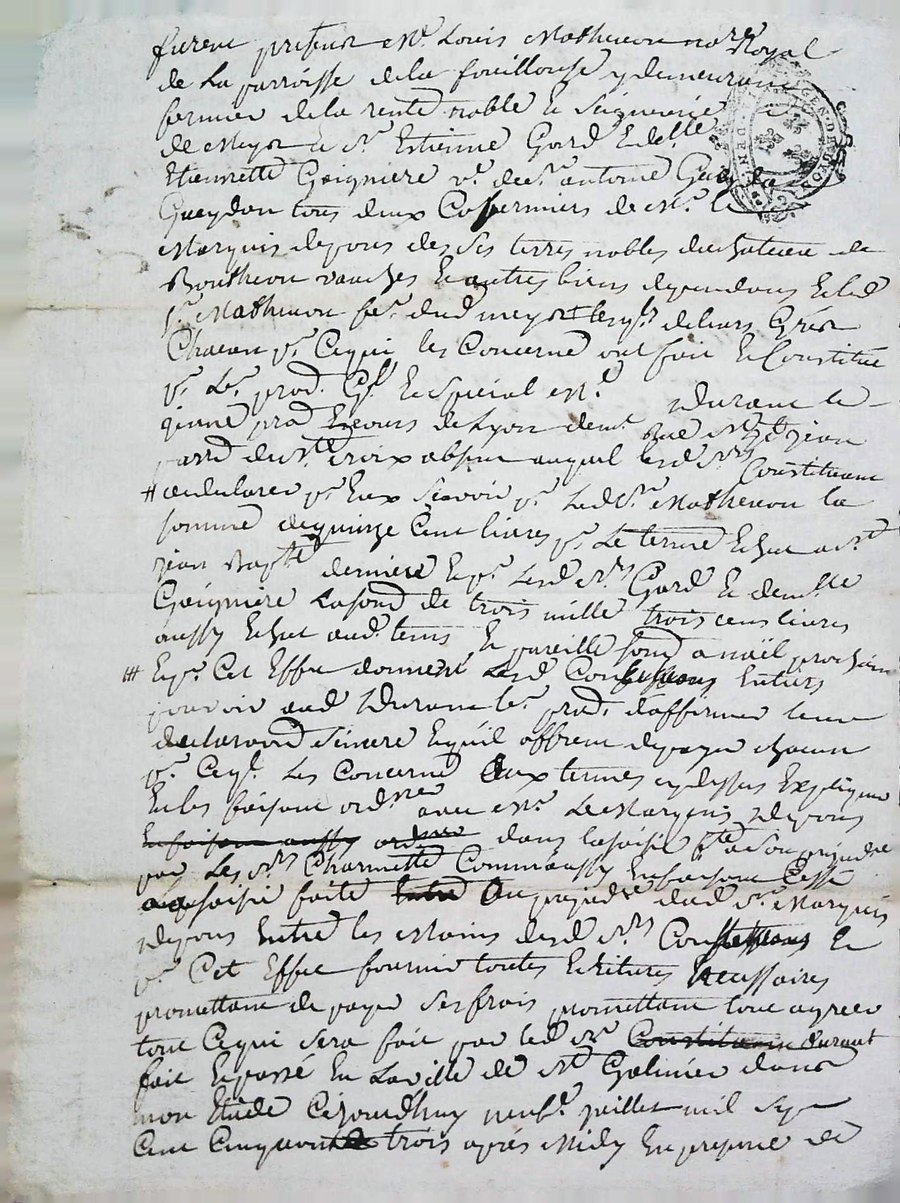 furent presents Me. Louis Mathevon nore. Royal
de La parroisse de la fouillouse y demeurant
fermier de la rente noble & Seigneurie
de Meyot & Sr. Estienne Gord & delle
Etiennette Goigniere ve. de Sr. antoine
Gueydon tous deux Cofermiers de Mr. le
Marquis de pons des ses terres nobles du chateau de
Boutheon vauches & autres biens dependans & led
Sr. Mathevon fer. dud meyot lesqls. de leurs Gréer
Chacun pr. Ce qui les Concerne ont fait & Constitué
pr. Lr. procr. Gl. & Special Me.
Durant le
jeune procr. Es cours de Lyon demt. Rue St. jean
parre. de Ste. Croix absent auquel lesd Srs. Constituant
# ont declaré pr. Eux Scavoir pr. Led Sr. Mathevon la
somme de quinze Cent livres pr. Le terme Echu a St
jean Bapte derniere & pr. Lesd Srs. Gord & demlle
Goigniere La somme de trois mille trois cens livres
aussy Echue aud. tems & pareille somme a noël prochain
## & pr. Cet Effet donnent Lesd Constituans Entiers
pouvoir aud Durant lr. procr. d'affirmer leur
declaration Sincere & qu'il offrent de payer chacun
pr. Ce ql. Les Concerne Aux termes cy dessus Expliqués
En les faisant ordner avec Mr. Le Marquis de pons
En faisant aussy ordner dans la saisie fte a son prejudice
par Les Srs Charmette Comm'aussy En faisant Cesser
la saisie faite Entre Au prejudce dud Sr. Marquis
de pons Entre les Mains desd Srs Constituans &
pr. Cet Effet fournir toutes Ecritures Necessaires
promettant de payer Ses frais promettant tout agreer
tout Ce qui Sera fait par led Sr Constituant Durant
fait & passé En La ville de St Galmier dans
mon Etude Cejourd'huy neufe. juillet mil Sept
Cent Cinquante trois aprés Midy En presence de